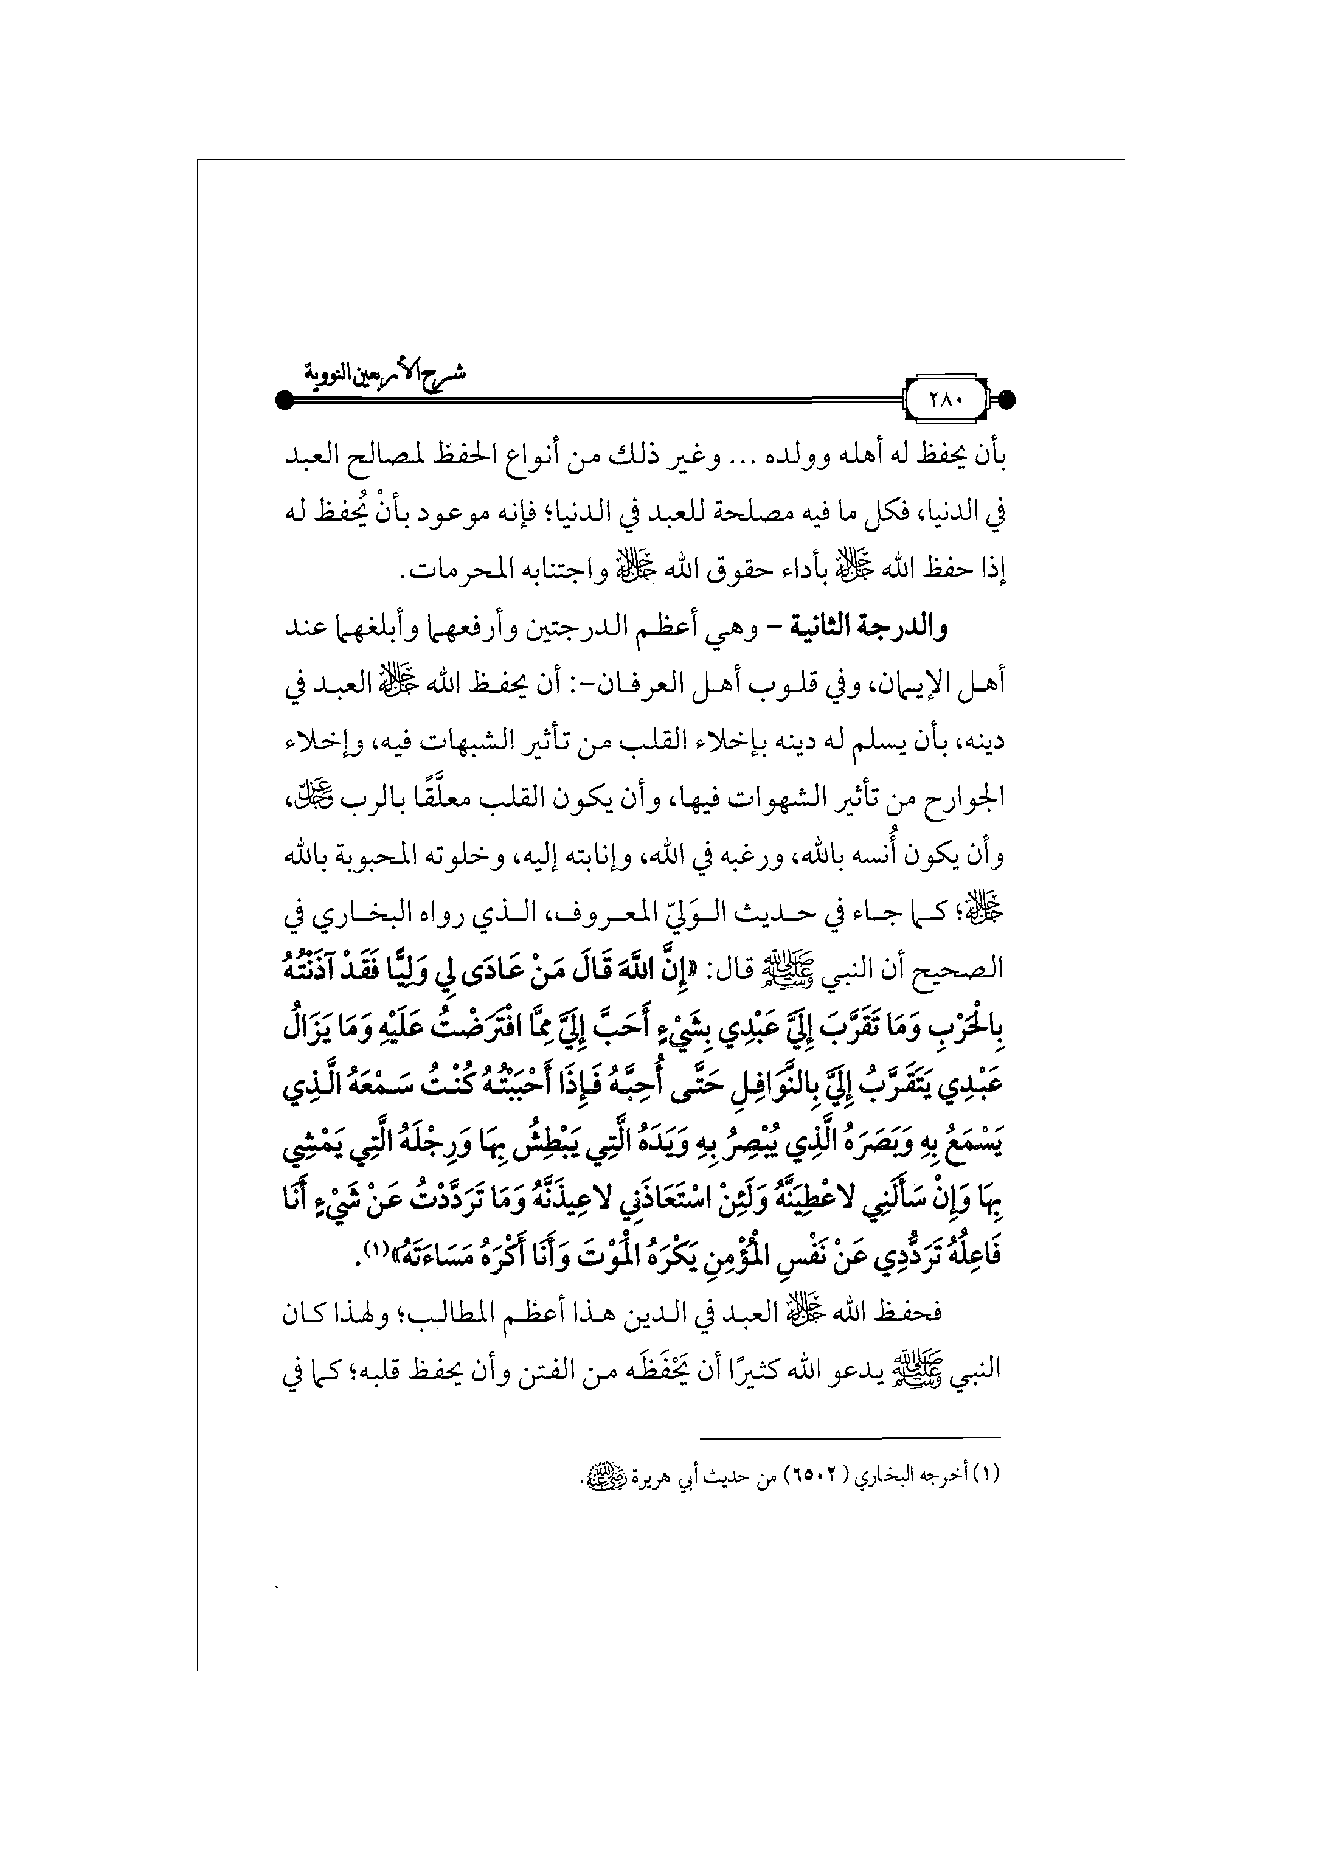 شرح الأربعين النووية
٢٨٠
بأن يحفظ له أهله وولده ... وغير ذلك من أنواع الحفظ لمصالح العبد
في الدنيا، فكل ما فيه مصلحة للعبد في الدنيا؛ فإنه موعود بأنْ يُحفظ له
إذا حفظ الله ﷻ بأداء حقوق الله ﷻ واجتنابه المحرمات.
والدرجة الثانية - وهي أعظم الدرجتين وأرفعهما وأبلغهما عند
أهل الإيمان، وفي قلوب أهل العرفان-: أن يحفظ الله ﷻ العبد في
دينه، بأن يسلم له دينه بإخلاء القلب من تأثير الشبهات فيه، وإخلاء
الجوارح من تأثير الشهوات فيها، وأن يكون القلب معلَّقًا بالرب عز وجل،
وأن يكون أُنسه بالله، ورغبه في الله، وإنابته إليه، وخلوته المحبوبة بالله
ﷻ؛ كما جاء في حديث الوَليّ المعروف، الذي رواه البخاري في
الصحيح أن النبي ﷺ قال: «إِنَّ اللَّهَ قَالَ مَنْ عَادَى لِي وَلِيًّا فَقَدْ آذَنْتُهُ
بِالْحَرْبِ وَمَا تَقَرَّبَ إِلَيَّ عَبْدِي بِشَيْءٍ أَحَبَّ إِلَيَّ مِمَّا افْتَرَضْتُ عَلَيْهِ وَمَا يَزَالُ
عَبْدِي يَتَقَرَّبُ إِلَيَّ بِالنَّوَافِلِ حَتَّى أُحِبَّهُ فَإِذَا أَحْبَبْتُهُ كُنْتُ سَمْعَهُ الَّذِي
يَسْمَعُ بِهِ وَبَصَرَهُ الَّذِي يُبْصِرُ بِهِ وَيَدَهُ الَّتِي يَبْطِشُ بِهَا وَرِجْلَهُ الَّتِي يَمْشِي
بِهَا وَإِنْ سَأَلَنِي لاعْطِيَنَّهُ وَلَئِنْ اسْتَعَاذَنِي لاعِيذَنَّهُ وَمَا تَرَدَّدْتُ عَنْ شَيْءٍ أَنَا
فَاعِلُهُ تَرَدُّدِي عَنْ نَفْسِ الْمُؤْمِنِ يَكْرَهُ الْمَوْتَ وَأَنَا أَكْرَهُ مَسَاءَتَهُ»(١).
فحفظ الله ﷻ العبد في الدين هذا أعظم المطالب؛ ولهذا كان
النبي ﷺ يدعو الله كثيرًا أن يَحْفَظَه من الفتن وأن يحفظ قلبه؛ كما في
(١) أخرجه البخاري (٦٥٠٢) من حديث أبي هريرة رضي الله عنه.